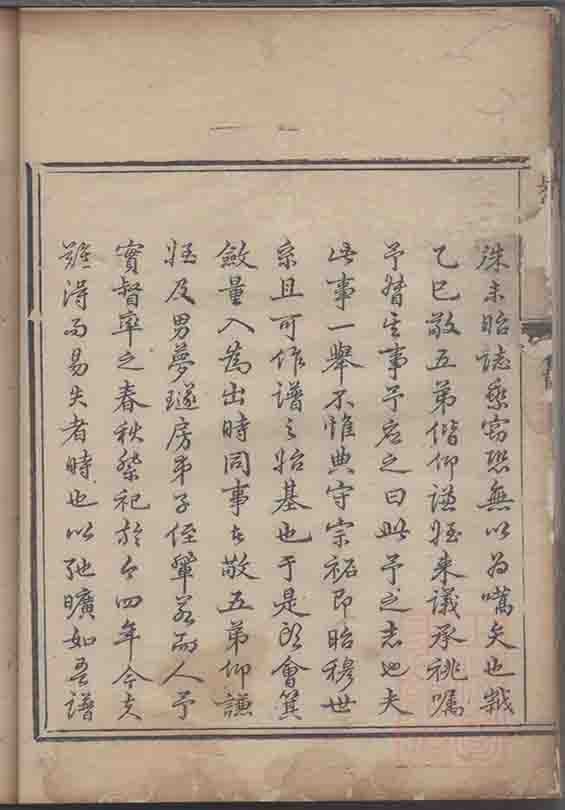 洙未昭誌乘窃恐無以為嚆矢也歲
乙巳敬五弟偕仰謙姪来議承祧嘱
予替其事予應之曰此予之志也夫
此事一舉不惟典守宗祏即昭穆世
系且可作譜之始基也于是頭會箕
斂量入為出時同事者敬五弟仰謙
姪及男夢璲房弟子侄輩若而人予
實督率之春秋祭祀於今四年今夫
難得而易失者時也以弛曠如吾譜